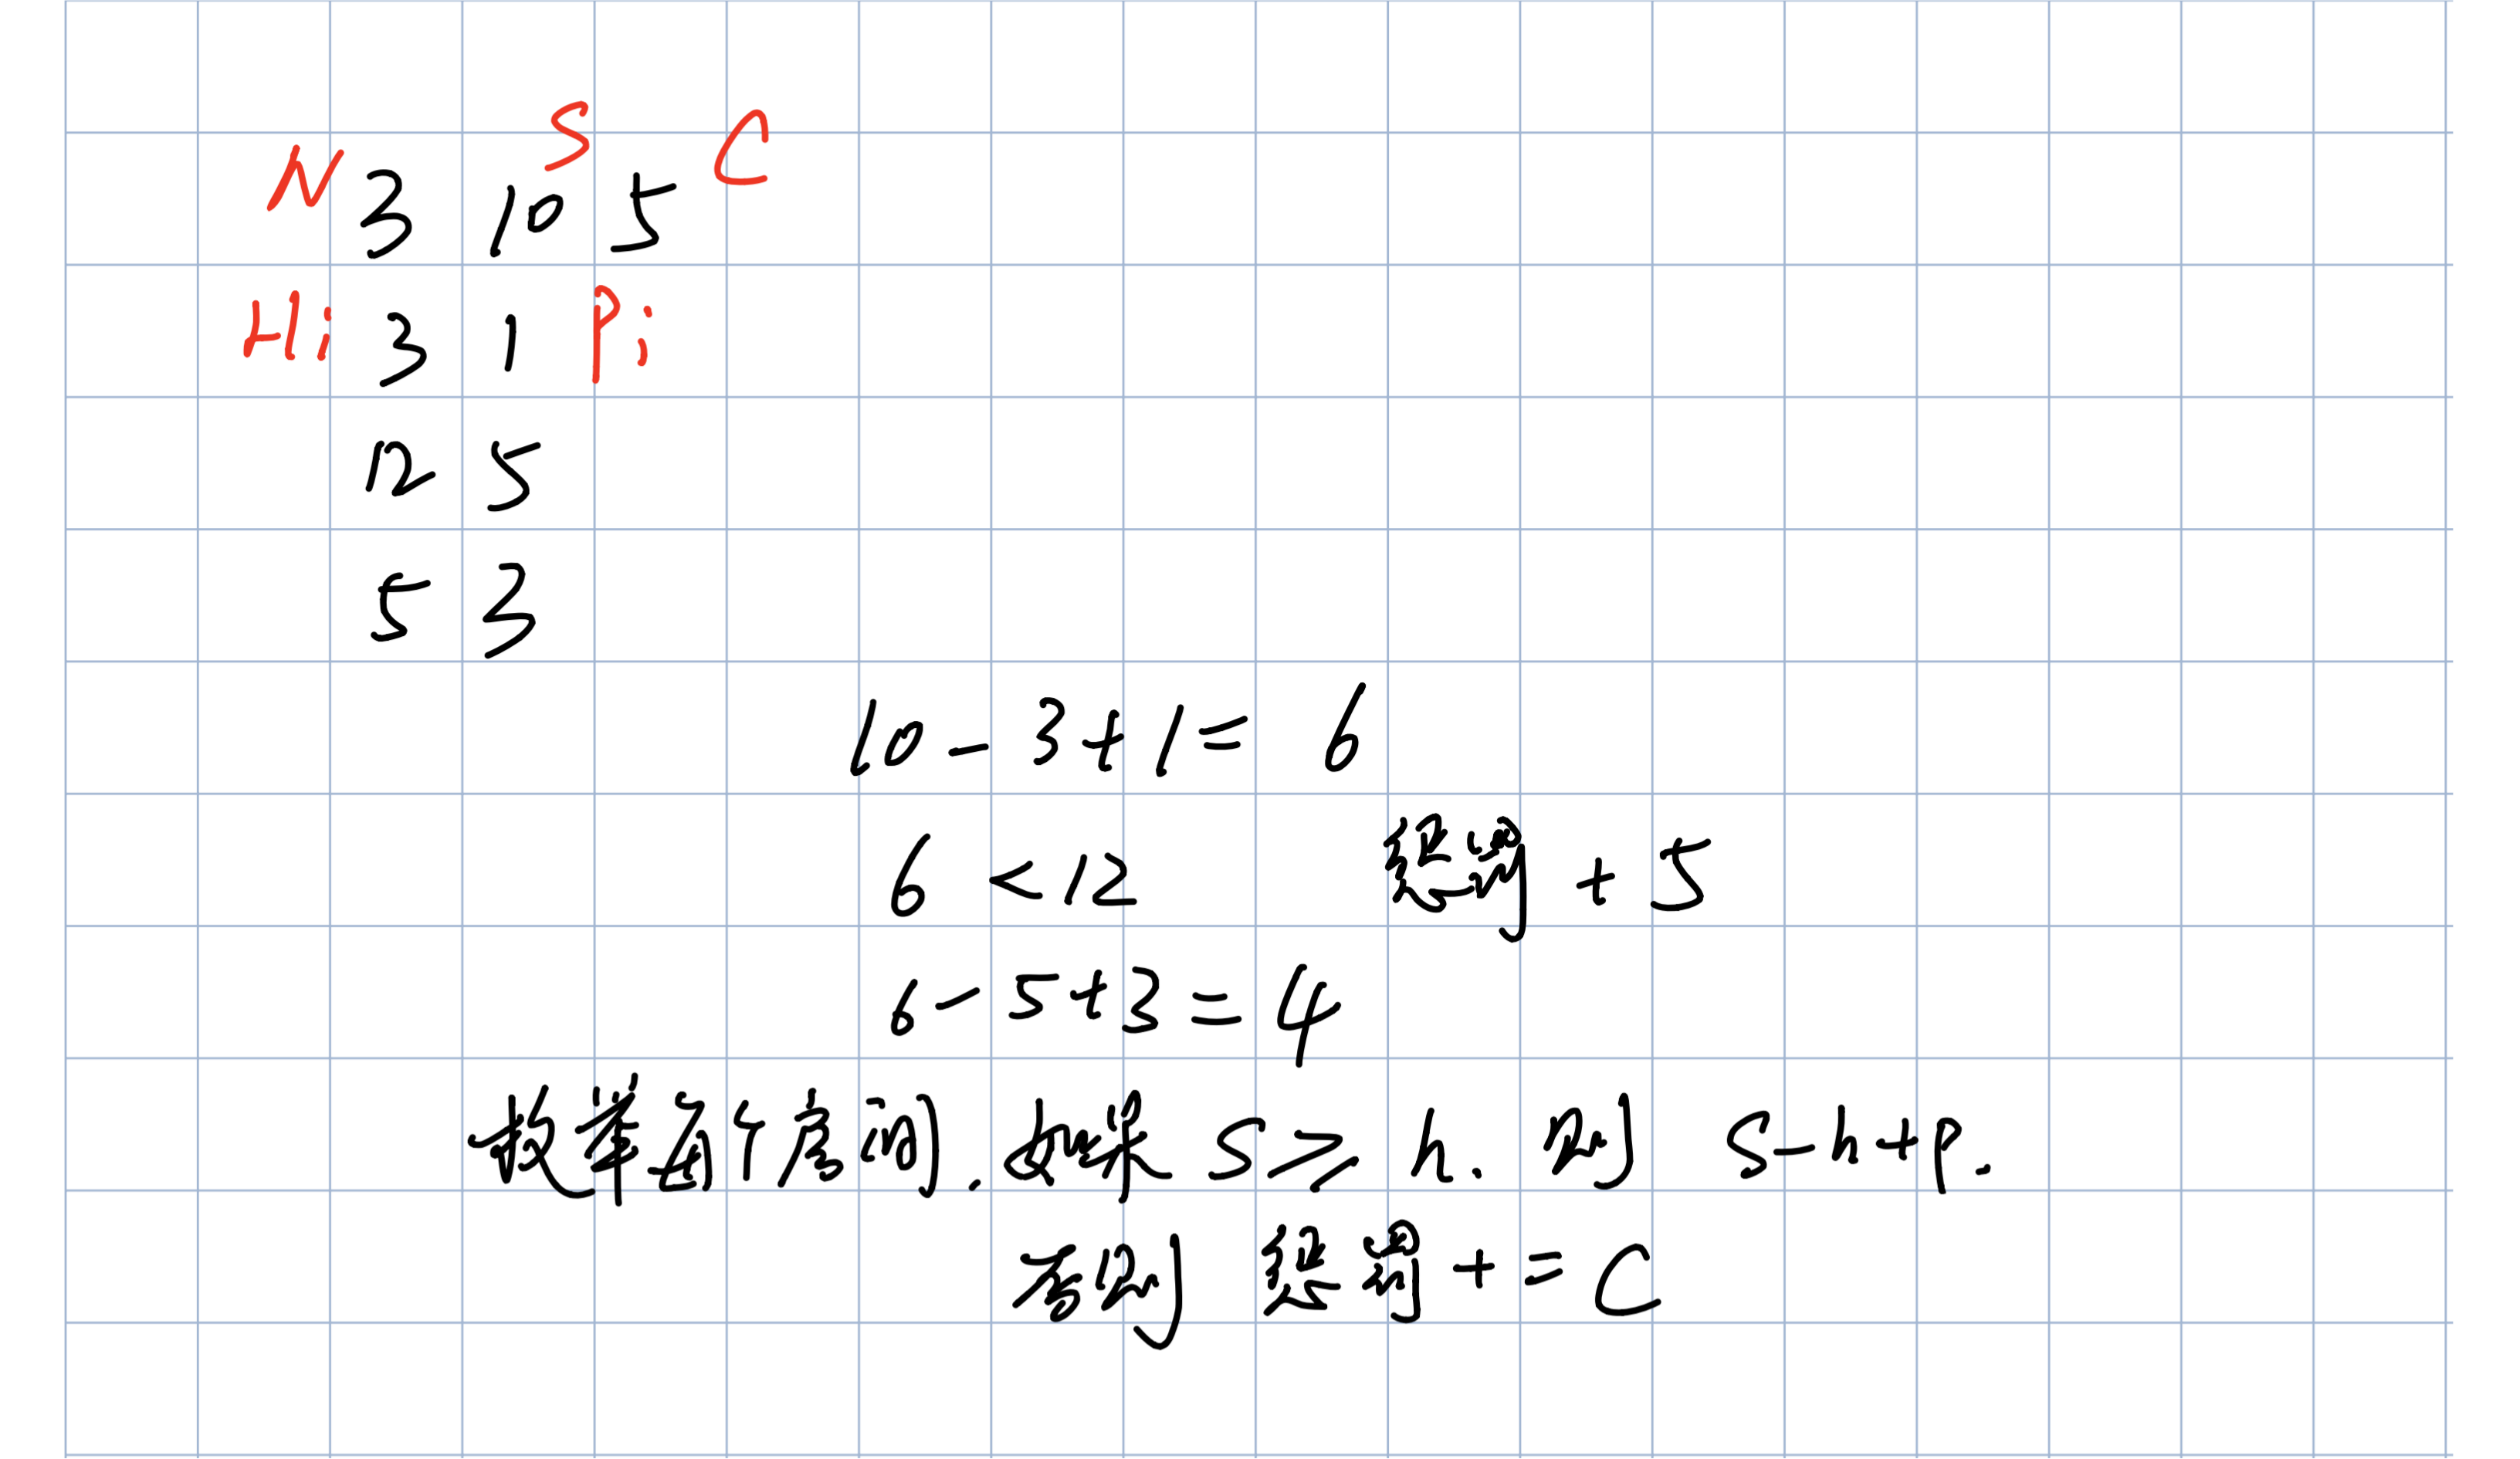 N S C
3 10 5
Hi 3 1 Pi
12 5
5 3
10-3+1= 6
6 <12 惩罚 + 5
6-5+3=4
枚举每个房间. 如果 S≥ h. 则 S-h+P.
否则 惩罚 += C